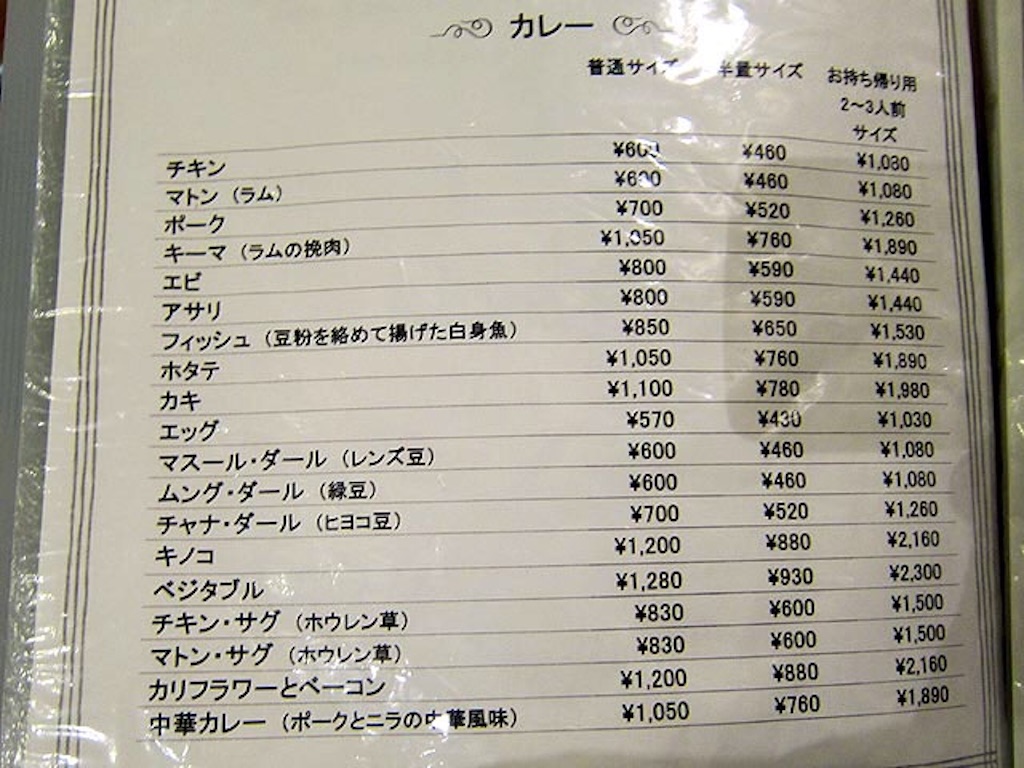 カレー
普通サイズ 半量サイズ お持ち帰り用
2～3人前
サイズ
チキン ¥600 ¥460 ¥1,080
マトン（ラム） ¥600 ¥460 ¥1,080
ポーク ¥700 ¥520 ¥1,260
キーマ（ラムの挽肉） ¥1,050 ¥760 ¥1,890
エビ ¥800 ¥590 ¥1,440
アサリ ¥800 ¥590 ¥1,440
フィッシュ（豆粉を絡めて揚げた白身魚） ¥850 ¥650 ¥1,530
ホタテ ¥1,050 ¥760 ¥1,890
カキ ¥1,100 ¥780 ¥1,980
エッグ ¥570 ¥430 ¥1,030
マスール・ダール（レンズ豆） ¥600 ¥460 ¥1,080
ムング・ダール（緑豆） ¥600 ¥460 ¥1,080
チャナ・ダール（ヒヨコ豆） ¥700 ¥520 ¥1,260
キノコ ¥1,200 ¥880 ¥2,160
ベジタブル ¥1,280 ¥930 ¥2,300
チキン・サグ（ホウレン草） ¥830 ¥600 ¥1,500
マトン・サグ（ホウレン草） ¥830 ¥600 ¥1,500
カリフラワーとベーコン ¥1,200 ¥880 ¥2,160
中華カレー（ポークとニラの中華風味） ¥1,050 ¥760 ¥1,890